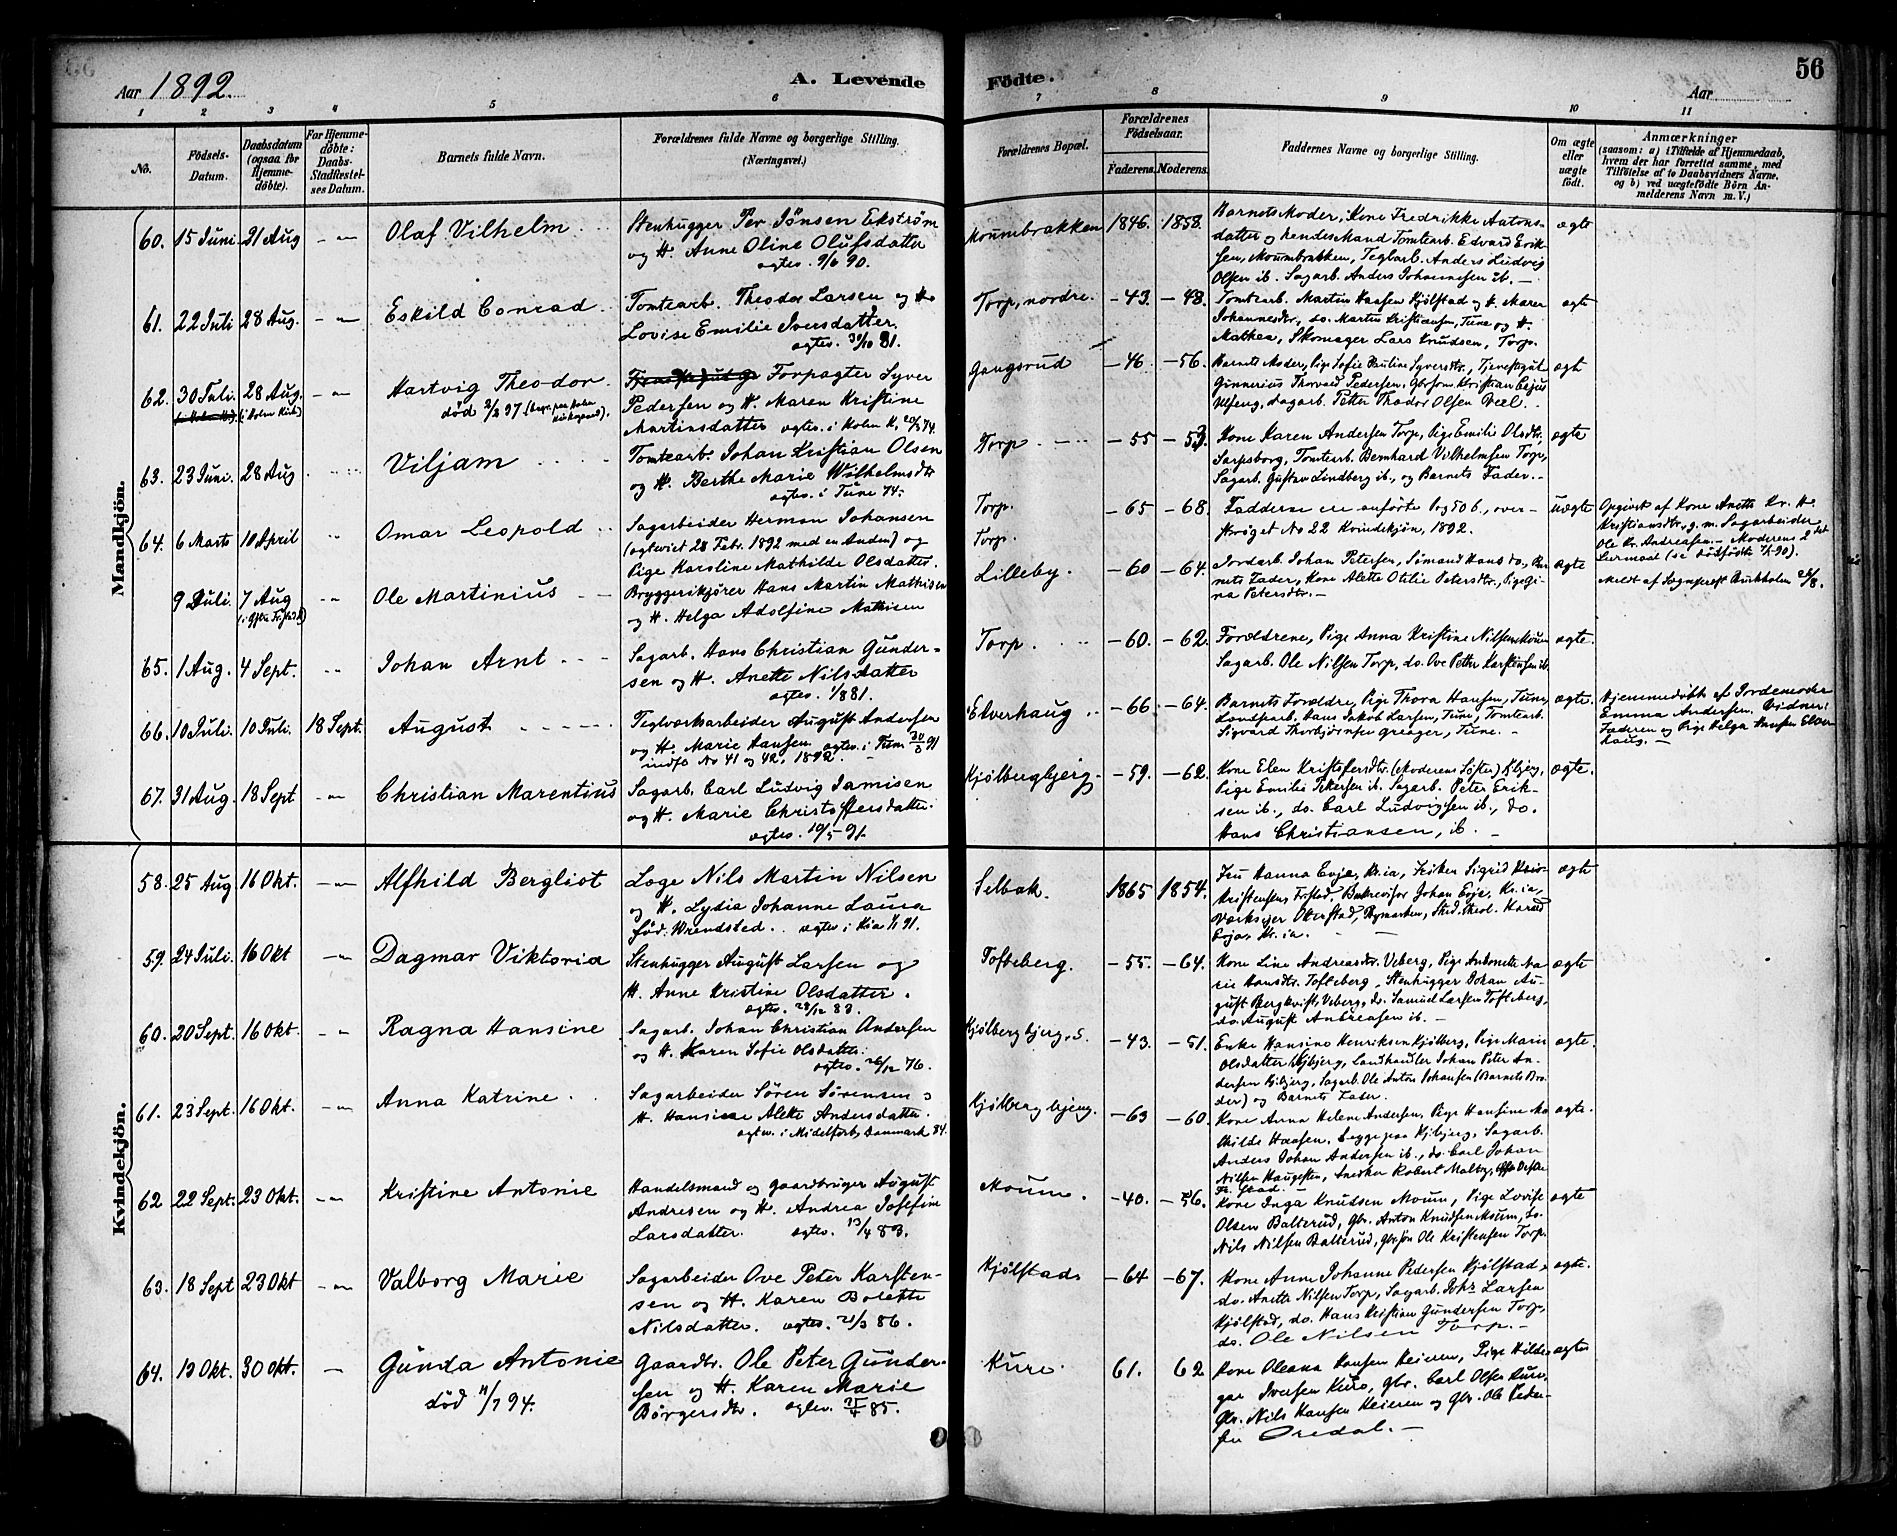 Aar 1892.
A. Levende Fødte.
56
Aar
1 2 3 4 5 6 7 8 9 10 11
No.
Fødsels-Datum.
Daabsdatum (ogsaa for Hjemme-døbte).
For Hjemme-døbte: Daabs-Stadfæstel-ses Datum.
Barnets fulde Navn.
Forældrenes fulde Navne og borgerlige Stilling. (Næringsvei.)
Forældrenes Bopæl.
Forældrenes Fødselsaar.
Faderens. Moderens.
Faddernes Navne og borgerlige Stilling.
Om ægte eller uægte født.
Anmærkninger
(saasom: a) i Tilfælde af Hjemmedaab, hvem der har forrettet samme, med Tilføielse af to Daabsvidners Navne, og b) ved uægtefødte Børn An-melderens Navn m. V.)
Mandkjön.
60. 15 Juni 21 Aug Olaf Vilhelm
Stenhugger Per Jönsen Ekström
og H. Anne Oline Olufsdatter
Moumbrakken 1846. 1858.
Barnets Moder, Kone Fredrikke Antons-
datter og hendes Mand Tomtearb. Edvard Erik-
sen, Moumbrakken, Teglarb. Anders Ludvig
Olsen ib. Sagarb. Anders Johannesen ib.
ægte
61. 22 Juli 28 Aug. Eskild Conrad
Tomtearb. Theodor Larsen og H.
Lovise Emilie Iversdatter.
ægtev. 30/10 81.
Torp, nordre. -43. -48.
Tomtearb. Martin Hansen Kjölstad og H. Maren
Johannesdtr., do. Martin Kristiansen, Tune og H.
Mathea, Skomager Lars Knudsen, Torp.
ægte
62. 30 Juli. 28 Aug. (i Holm Kirke) Hartvig Theodor.
Forpagter Syver
Pedersen og H. Maren Kristine
Martinsdatter ægtev. i Holm K.
Gangsrud -46 -56.
Barnets Moder, Pige Sofie Pauline Syversdtr., Tjenestegut
Gunnerius Thorvald Pedersen, Kristian
Sagarb. Petter Theodor Olsen
ægte
63. 23 Juni. 28 Aug Viljam
Tomtearb. Johan Kristian Olsen
og H. Berthe Marie Wilhelmsdtr
ægtev. i Tune 74.
Torp. -55 -53.
Kone Karen Andersen Torp, Pige Emilie Olsdtr.
Sarpsborg, Tomtearb. Bernhard Vilhelmsen Torp,
Sagarb. Gustav Lindberg ib., og Barnets Fader.
ægte
64. 6 Marts 10 April Omar Leopold
Sagarbeider Herman Johansen
(ægteviet 28 Febr. 1892 med en Anden) og
Pige Karoline Mathilde Olsdatter.
Torp.
Torp. -65 -68.
Fadderne ere anførte Pag 50 b., over-
No 22 Kvindekjön, 1892.
uægte
Opgivet af Kone Anette Kr. H.
Kristiansdtr., g. m. Sagarbeider
Ole Kr. Andreasen. Moderens 2det
Leiermaal
9 Juli. 7 Aug Ole Martinius
Bryggerikjører Hans Martin Mathisen
og H. Helga Adolfine Mathisen
Lilleby. -60 -64.
Jordarb. Johan Petersen, Sömand Hans do., Bar-
nets Fader, Kone Alette Otilie Petersdtr., Pige Gi-
na Petersdtr.
ægte
Meldt af Sognepræst Burkholm
65. 1 Aug. 4 Sept. Johan Arnt
Sagarb. Hans Christian Gunder-
sen og H. Anette Nilsdatter
ægtev. 1/8 81.
Torp. -60. -62.
Forældrene, Pige Anna Kristine Nilsen
Sagarb. Ole Nilsen Torp, do. Ove Peter Karstensen ib.
ægte.
66. 10 Juli. 10 Juli. 18 Sept. August
Teglværkarbeider August Andersen
og H. Marie Hansen ægtev. i Tune
indfo No 41 og 42, 1892.
Elverhaug -66 -64.
Barnets Forældre, Pige Thora Hansen, Tune,
Hans Jakob Larsen, Tune, Tomtearb.
Sigvard Greager, Tune.
ægte.
Hjemmedøbt af Jordemoder
Emma Andersen. Vidner:
Faderen og Pige Helga Hansen Elver
haug.
67. 31 Aug. 18 Sept Christian Marentius
Sagarb. Carl Ludvig Jamisen
og H. Marie Christoffersdatter.
ægtev. 10/5 91.
Kjølbergbjerg. -59. -62.
Kone Elen Kristofersdtr. (Moderens Søster) Kbjerg,
Pige Emilie Petersen ib. Sagarb. Peter Erik-
sen ib., do. Carl Ludvigsen ib., do.
Hans Christiansen, ib.
ægte.
Kvindekjön.
58. 25 Aug 16 Okt. Alfhild Bergliot
Loge Nils Martin Nilsen
og H. Lydia Johanne Laura
fød. Wrendsted. ægtev i Kia
Selbak. 1865 1854.
Fru Hanna Evje, Kr.ia, Frøken Sigrid
Kristensen, Fr.stad, Johan Evje, Kr.ia,
Stud. theol. Harald
Evje, Kr.ia.
ægte
59. 24 Juli. 16 Okt Dagmar Viktoria
Stenhugger August Larsen og
H. Anne Kristine Olsdatter.
ægtev. 28/12 83.
Tofteberg. -55. -64.
Kone Line Andreasdtr. Veberg, Pige Antonette Ma
rie Hansdtr. Tofteberg, Stenhugger Johan Au-
gust Bergkvist, Veberg, do. Samuel Larsen Tofteberg,
do. August Andreasen ib.
ægte
60. 20 Sept. 16 Okt. Ragna Hansine
Sagarb. Johan Christian Andersen
og H. Karen Sofie Olsdatter.
ægtev. 26/12 76.
Kjølberg bjerg, S. -43. -51.
Enke Hansine Henriksen Kjølberg, Pige Marie
Olsdatter Kjbjerg, Landhandler Johan Peter An-
dersen Kjbjerg, Sagarb. Ole Anton Johansen (Barnets Bro
der) og Barnets Fader.
ægte.
61. 23 Sept. 16 Okt. Anna Katrine.
Sagarbeider Søren Sørensen og
H. Hansine Alette Andersdatter.
ægtev. i Midelfart, Danmark 84.
Kjølberg bjerg. -63 -60.
Kone Anna Helene Andersen, Pige Hansine Ma
thilde Hansen, begge paa Kjbjerg, Sagarb.
Anders Johan Andersen ib., do. Carl Johan
Nilsen Haugsten, Snedker Robert Malby,
Fr. stad.
ægte.
62 22 Sept. 23 Okt. Kristine Antonie
Handelsmand og Gaardbruger August
Andresen og H. Andrea Josefine
Larsdatter. ægtev. 13/4 83.
Moum. -40. -56.
Kone Inga Knudsen Moum, Pige Lovise
Olsen Balterud, Gbr. Anton Knudsen Moum, do.
Nils Nilsen Balterud, Gbr.søn Ole Kristensen Torp.
ægte
63. 18 Sept 23 Okt Valborg Marie
Sagarbeider Ove Peter Karsten-
sen og H. Karen Bolette
Nilsdatter. ægtev. 21/3 86.
Kjølstad. -64 -67.
Kone Anne Johanne Pedersen Kjølstad,
do. Anette Nilsen Torp, Sagarb. Johs Larsen
Kjølstad, do. Hans Kristian Gundersen Torp,
do. Ole Nilsen Torp.
ægte.
64. 13 Okt. 30 Okt. Gunda Antonie
død 11/7 94.
Gaardbr. Ole Peter Gunder-
sen og H. Karen Marie
Børgersdtr. ægtev. 85.
Kure. 61. 62
Kone Oleana Hansen Heieren, Pige Hilde-
gar Iversen Kure, Gbr. Carl Olsen Kure,
Gbr. Nils Hansen Heieren og Gbr. Ole Peder-
sen Oredal.
ægte